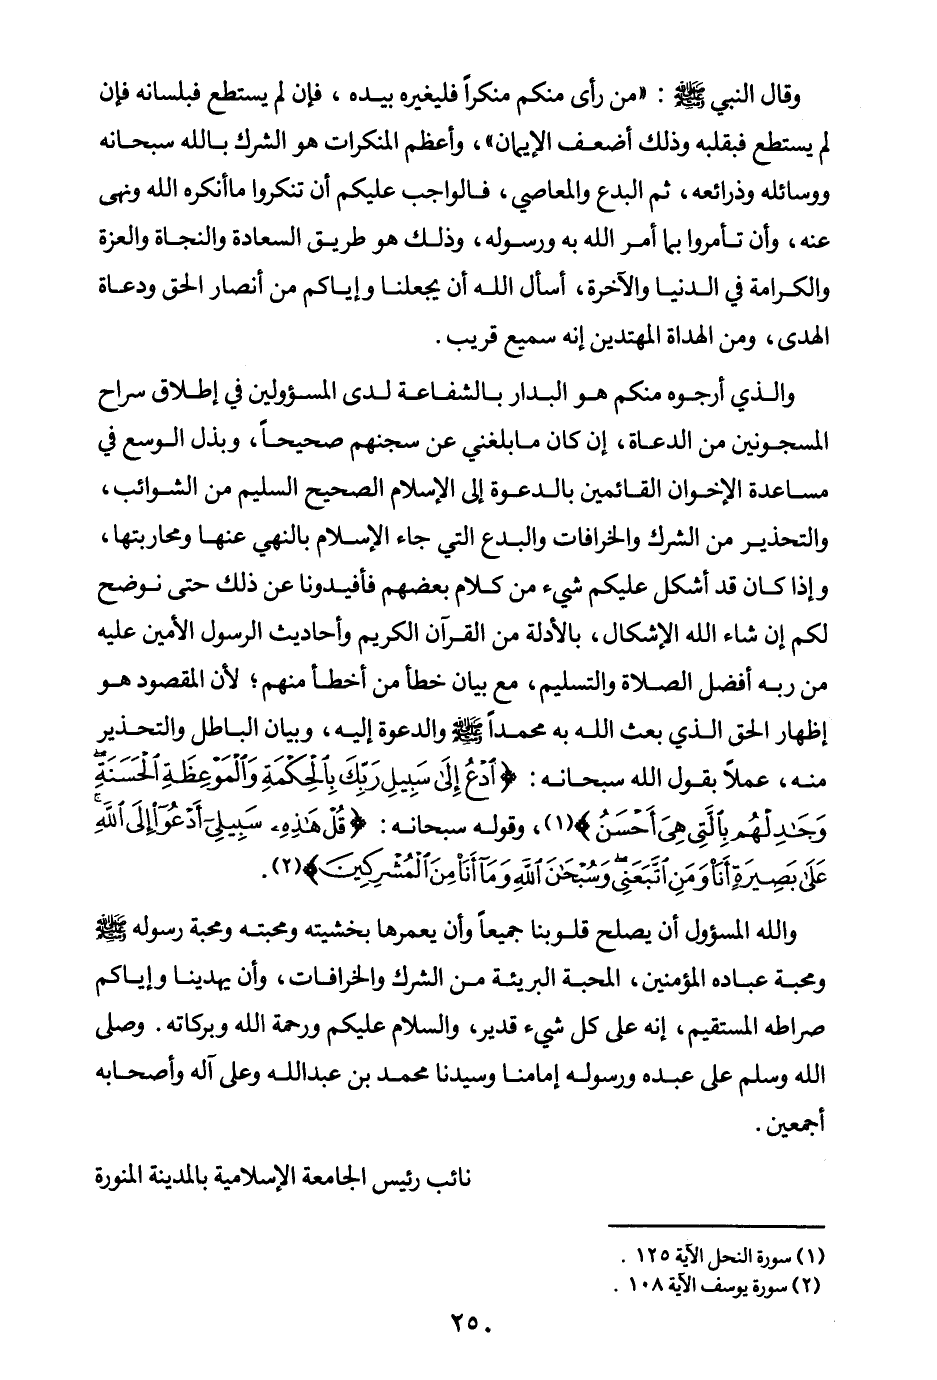 وقال النبي ﷺ : «من رأى منكم منكراً فليغيره بيـده ، فإن لم يستطع فبلسانه فإن
لم يستطع فبقلبه وذلك أضعـف الإيمان» ، وأعظم المنكرات هو الشرك بـالله سبحـانه
ووسائله وذرائعه ، ثم البدع والمعاصي ، فـالواجب عليكم أن تنكروا ماأنكره الله ونهى
عنه ، وأن تـأمروا بما أمـر الله به ورسوله ، وذلـك هو طريـق السعادة والنجاة والعزة
والكـرامة في الـدنيـا والآخرة ، أسأل اللـه أن يجعلنـا وإياكم من أنصار الحق ودعـاة
الهدى ، ومن الهداة المهتدين إنه سميع قريب .
والـذي أرجـوه منكم هـو البـدار بـالشفـاعـة لـدى المسـؤولين في إطـلاق سراح
المسجـونين من الدعـاة ، إن كان مـابلغني عن سجنهم صحيحـاً ، وبذل الـوسع في
مسـاعدة الإخـوان القـائمين بـالـدعـوة إلى الإسلام الصحيح السليم من الشـوائب ،
والتحذيـر من الشرك والخرافات والبـدع التي جاء الإسـلام بالنهي عنهـا ومحاربتها ،
وإذا كـان قد أشكل عليكم شيء من كـلام بعضهم فأفيـدونا عن ذلك حتى نـوضح
لكم إن شاء الله الإشكال ، بالأدلة من القـرآن الكريم وأحاديث الرسول الأمين عليه
من ربـه أفضل الصـلاة والتسليم ، مع بيان خطأ من أخطـأ منهم ؛ لأن المقصود هـو
إظهار الحق الـذي بعث اللـه به محمـداً ﷺ والدعوة إليـه ، وبيان البـاطل والتحـذير
منـه ، عملاً بقول الله سبحـانـه : ﴿ ٱدْعُ إِلَىٰ سَبِيلِ رَبِّكَ بِٱلْحِكْمَةِ وَٱلْمَوْعِظَةِ ٱلْحَسَنَةِۖ
وَجَٰدِلْهُم بِٱلَّتِى هِىَ أَحْسَنُ ﴾(١) ، وقولـه سبحانـه : ﴿ قُلْ هَٰذِهِۦ سَبِيلِىٓ أَدْعُوٓا۟ إِلَى ٱللَّهِۚ
عَلَىٰ بَصِيرَةٍ أَنَا۠ وَمَنِ ٱتَّبَعَنِىۖ وَسُبْحَٰنَ ٱللَّهِ وَمَآ أَنَا۠ مِنَ ٱلْمُشْرِكِينَ ﴾(٢) .
والله المسؤول أن يصلح قلـوبنا جميعاً وأن يعمرها بخشيته ومحبتـه ومحبة رسوله ﷺ
ومحبـة عبـاده المؤمنين ، المحبـة البريئـة مـن الشرك والخرافـات ، وأن يهدينـا وإيـاكم
صراطه المستقيم ، إنه على كل شيء قدير ، والسلام عليكم ورحمة الله وبركاته . وصلى
الله وسلم على عبـده ورسولـه إمامنـا وسيدنا محمـد بن عبداللـه وعلى آله وأصحـابه
أجمعين .
نائب رئيس الجامعة الإسلامية بالمدينة المنورة
(١) سورة النحل الآية ١٢٥ .
(٢) سورة يوسف الآية ١٠٨ .
٢٥٠